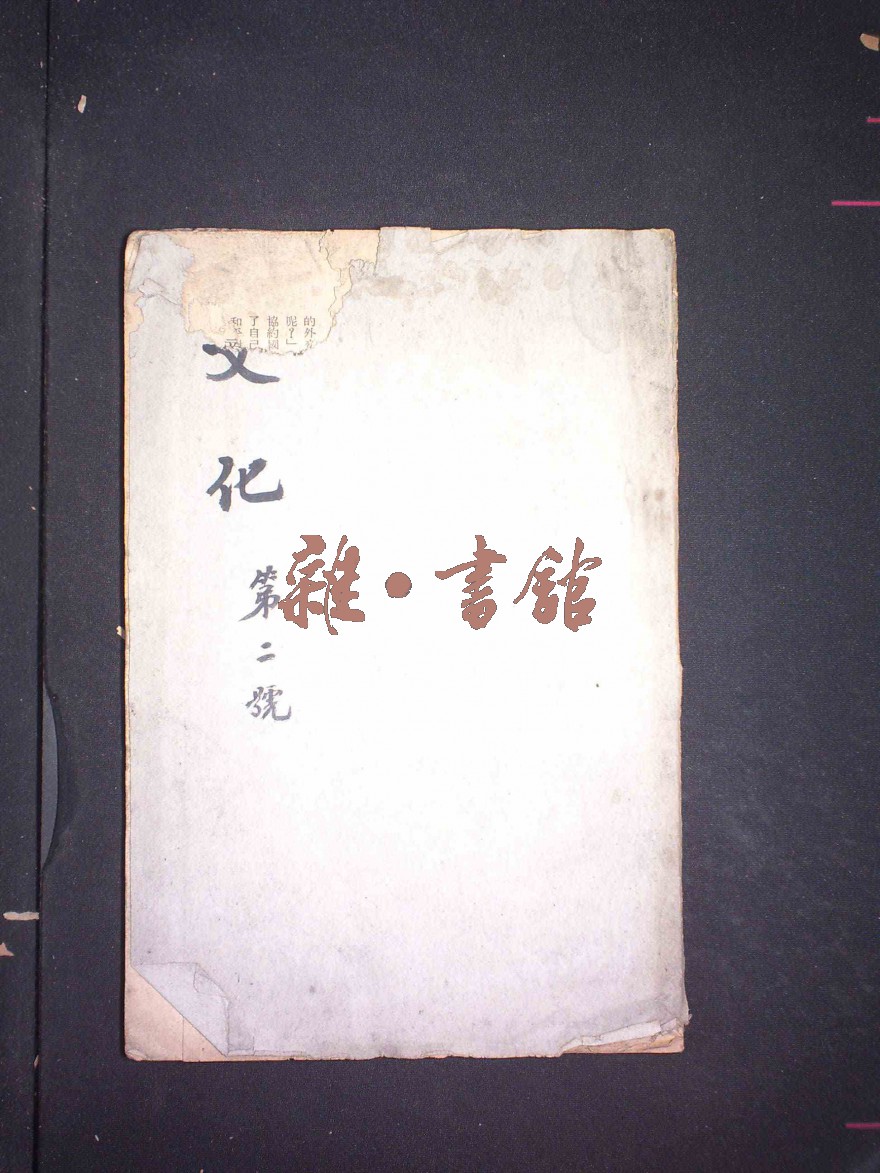 的外
呢？」
協約國
了自己
和
文化
第二號
雜·書館